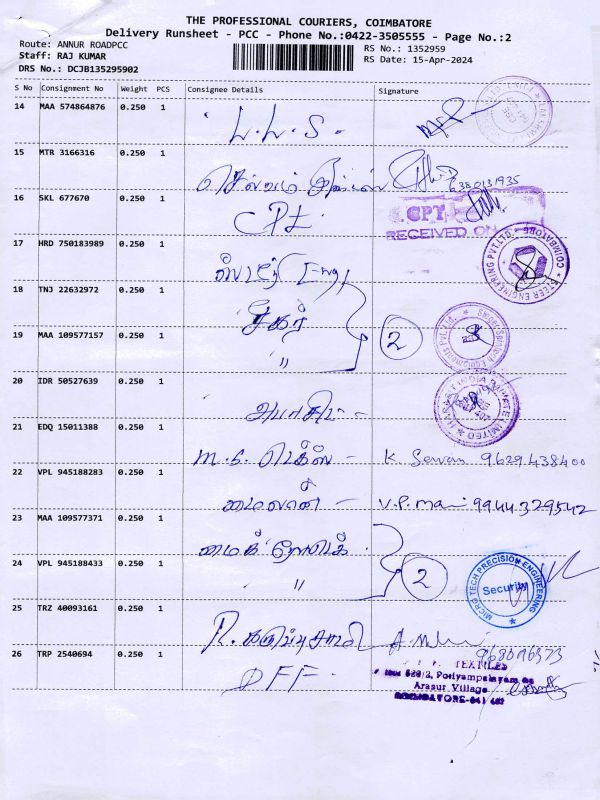 THE PROFESSIONAL COURIERS, COIMBATORE
Delivery Runsheet - PCC - Phone No.:0422-3505555 - Page No.:2
Route: ANNUR ROADPCC
RS No.: 1352959
Staff: RAJ KUMAR
RS Date: 15-Apr-2024
DRS No.: DCJB135295902
S No Consignment No Weight PCS Consignee Details Signature
14 MAA 574864876 0.250 1
L.L.S-
15 MTR 3166316 0.250 1
செல்வம்
16 SKL 677670 0.250 1
CPT
RECEIVED ON
17 HRD 750183989 0.250 1
ஸ்டீர் Eng
STEER ENGINEERING PVT.LTD. COIMBATORE
18 TNJ 22632972 0.250 1
2
19 MAA 109577157 0.250 1
"
20 IDR 50527639 0.250 1
PRIVATE LIMITED
21 EDQ 15011388 0.250 1
M.S. டெக்ஸ் - K 9629438400
22 VPL 945188283 0.250 1
மைலான் - V.P. Mani 9944329542
23 MAA 109577371 0.250 1
மைக்ரோடெக்
24 VPL 945188433 0.250 1
" 2
MICRO TECH PRECISION ENGINEERING
Security
25 TRZ 40093161 0.250 1
R. கருப்புசாமி
26 TRP 2540694 0.250 1
DFF-
TEXTILES
Poriyampalayam
Arasur Village
COIMBATORE-641 407